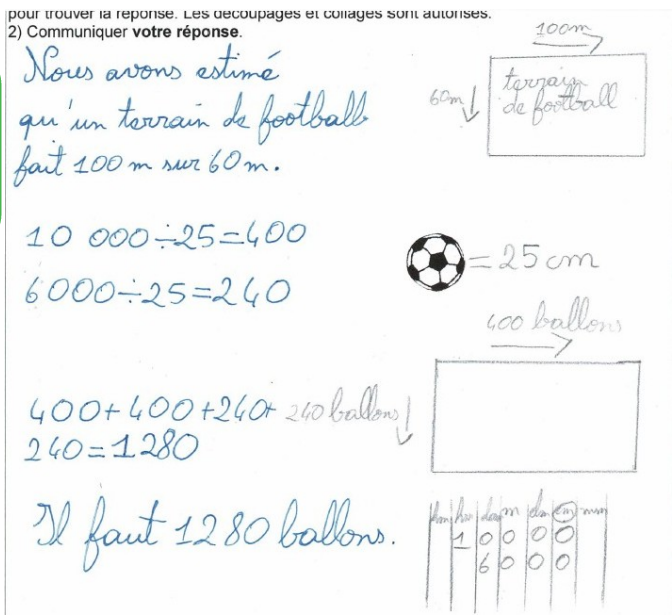 pour trouver la réponse. Les découpages et collages sont autorisés.
2) Communiquer votre réponse.
Nous avons estimé
qu'un terrain de football
fait 100 m sur 60 m.
100m
60m
terrain
de football
10 000÷25=400
6000÷25=240
= 25 cm
400 ballons
400+400+240+
240=1280
240 ballons
Il faut 1280 ballons.
km hm dam m dm cm mm
1 0 0 0 0
6 0 0 0